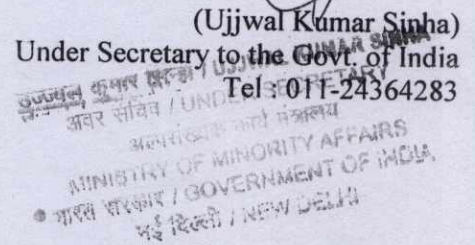 (Ujjwal Kumar Sinha)
Under Secretary to the Govt. of India
Tel : 011-24364283
उज्ज्वल कुमार सिन्हा / UJJWAL KUMAR SINHA
अवर सचिव / UNDER SECRETARY
अल्पसंख्यक कार्य मंत्रालय
MINISTRY OF MINORITY AFFAIRS
भारत सरकार / GOVERNMENT OF INDIA
नई दिल्ली / NEW DELHI